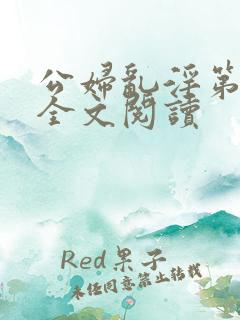 公婦亂淫第
全文閱讀
Red果子
未经同意禁止转载